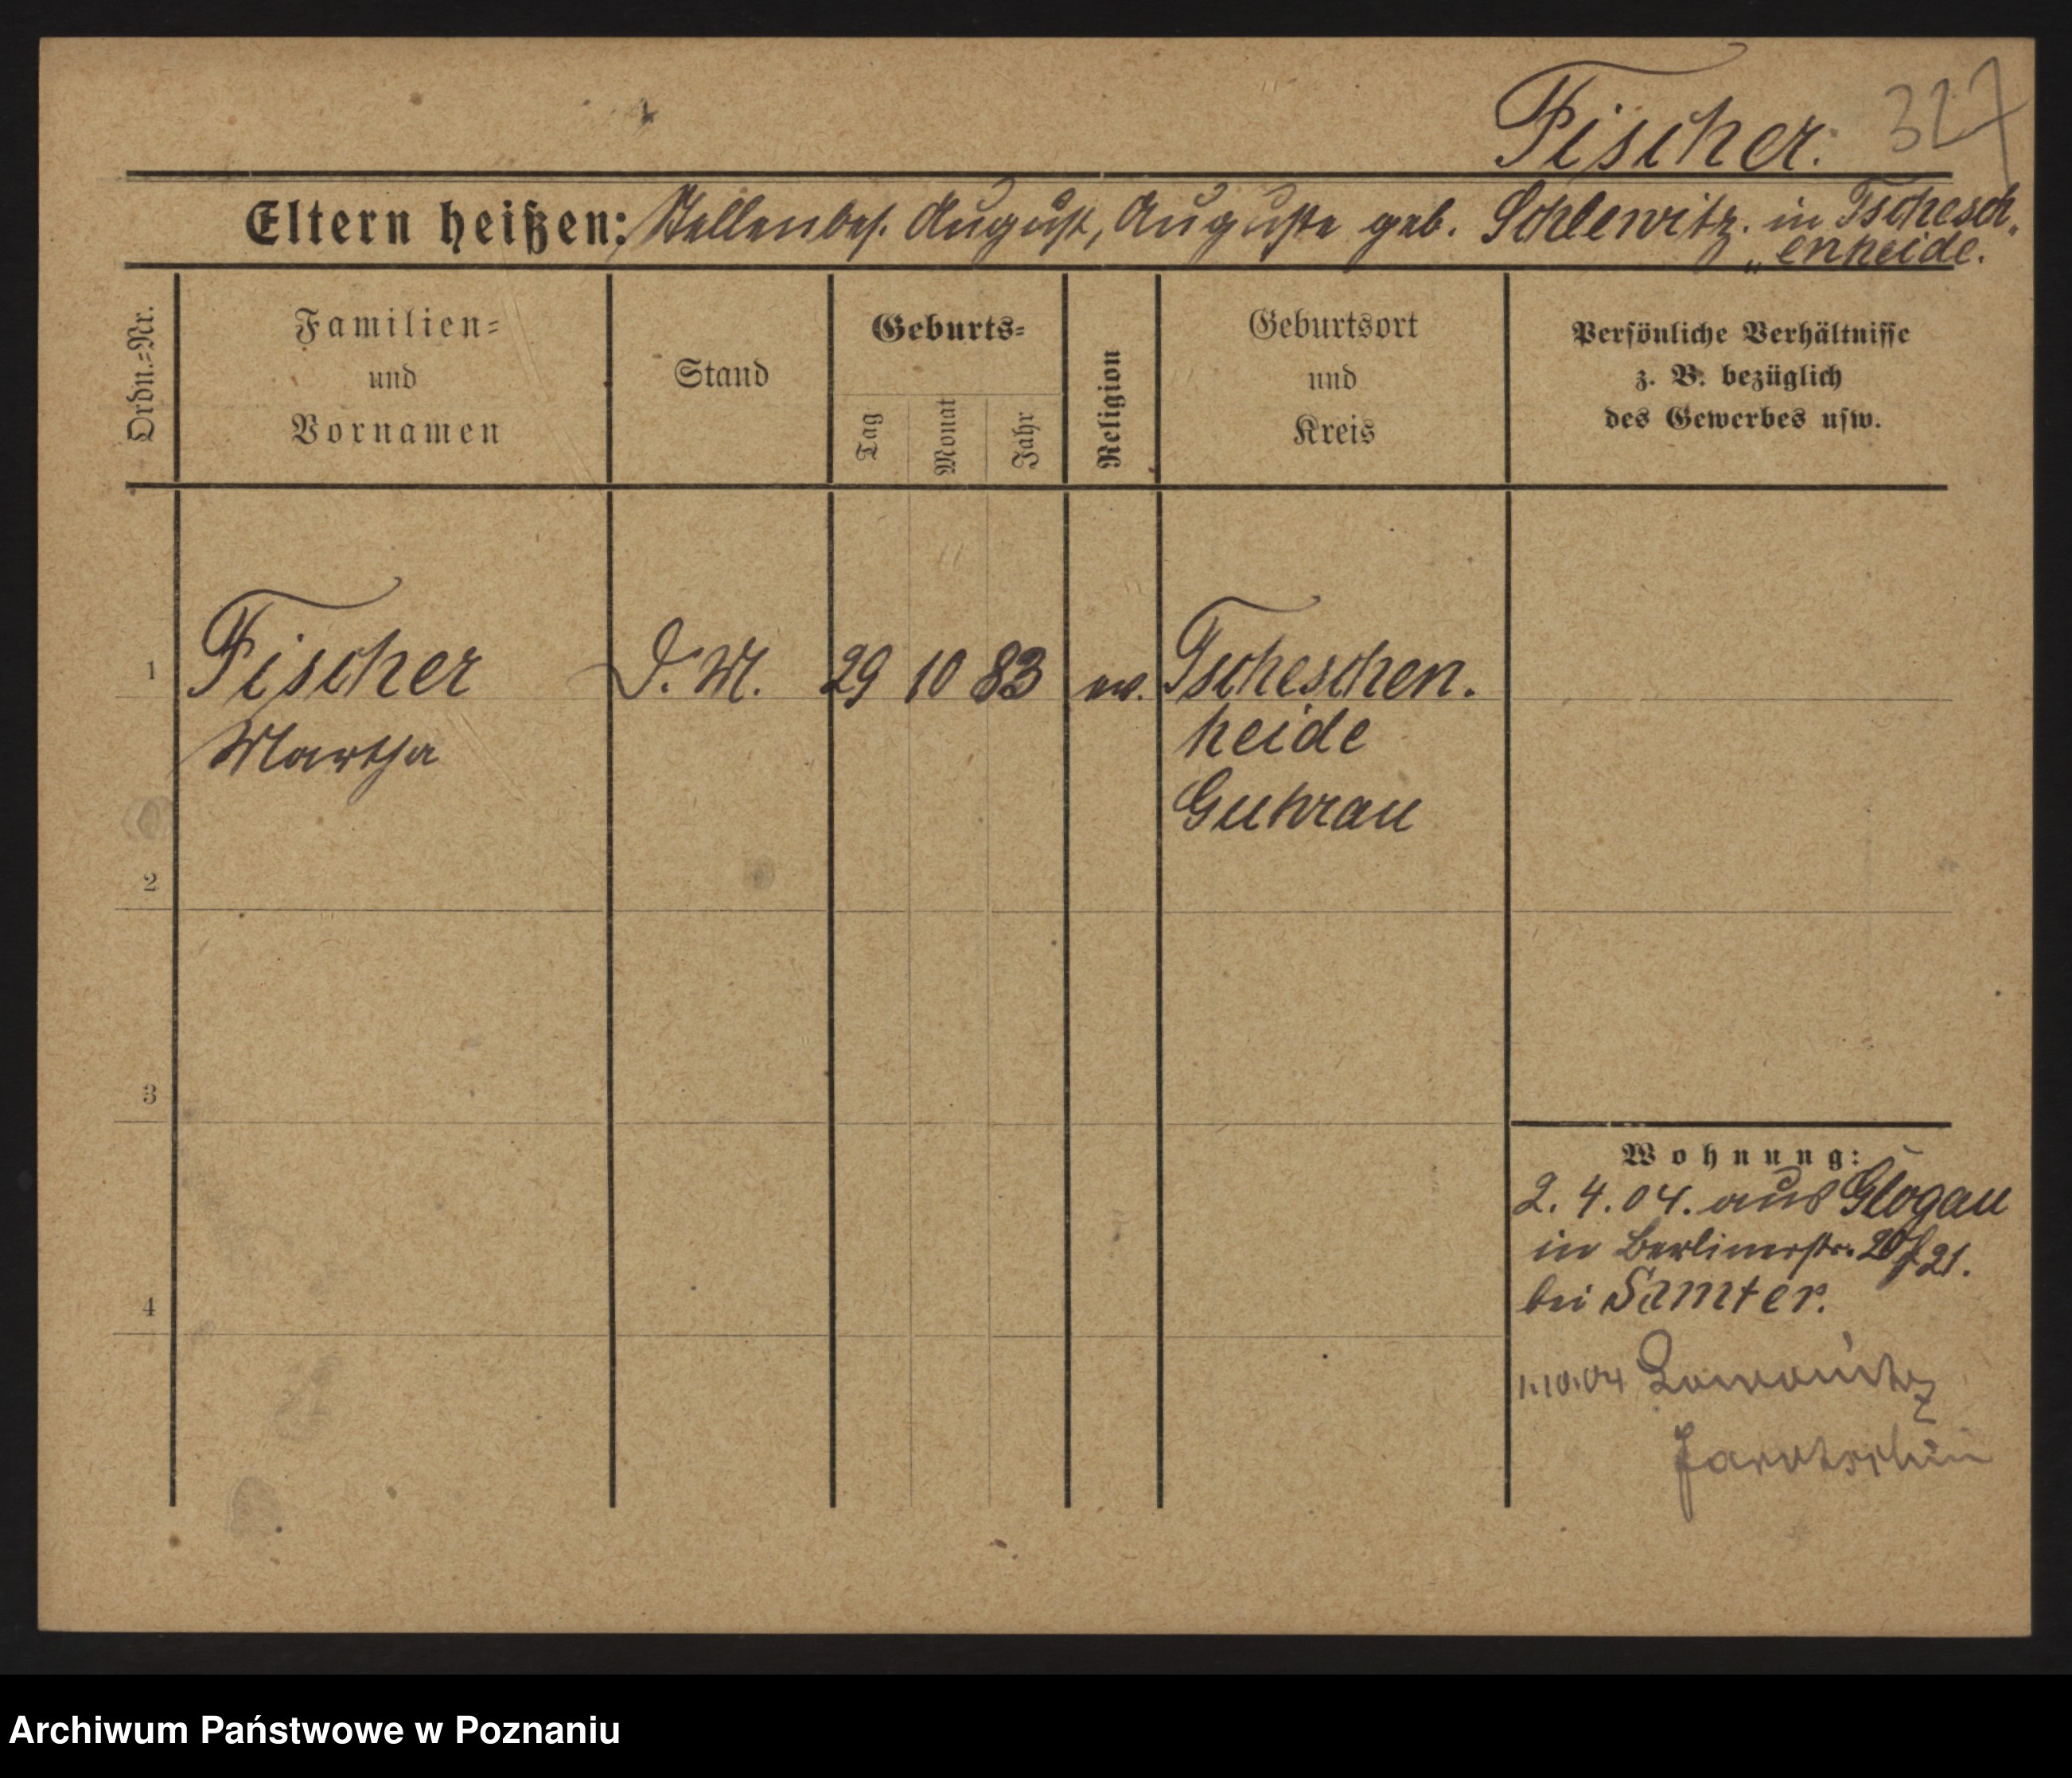 Fischer. 327
Eltern heißen: Stellenbes. August, Auguste geb. Schlewitz. in Tschesch„
„enheide.
Ordn.=Nr.
Familien=
und
Vornamen
Stand
Geburts=
Tag
Monat
Jahr
Religion
Geburtsort
und
Kreis
Persönliche Verhältnisse
z. B. bezüglich
des Gewerbes usw.
1 Fischer D. M. 29 10 83 ev. Tscheschen.
Martha heide
Guhrau
2
3
4
Wohnung:
2. 4. 04. aus Glogau
in Berlinerstr. 20/21.
bei Samter.
1.10.04
Jarotschin
Archiwum Państwowe w Poznaniu